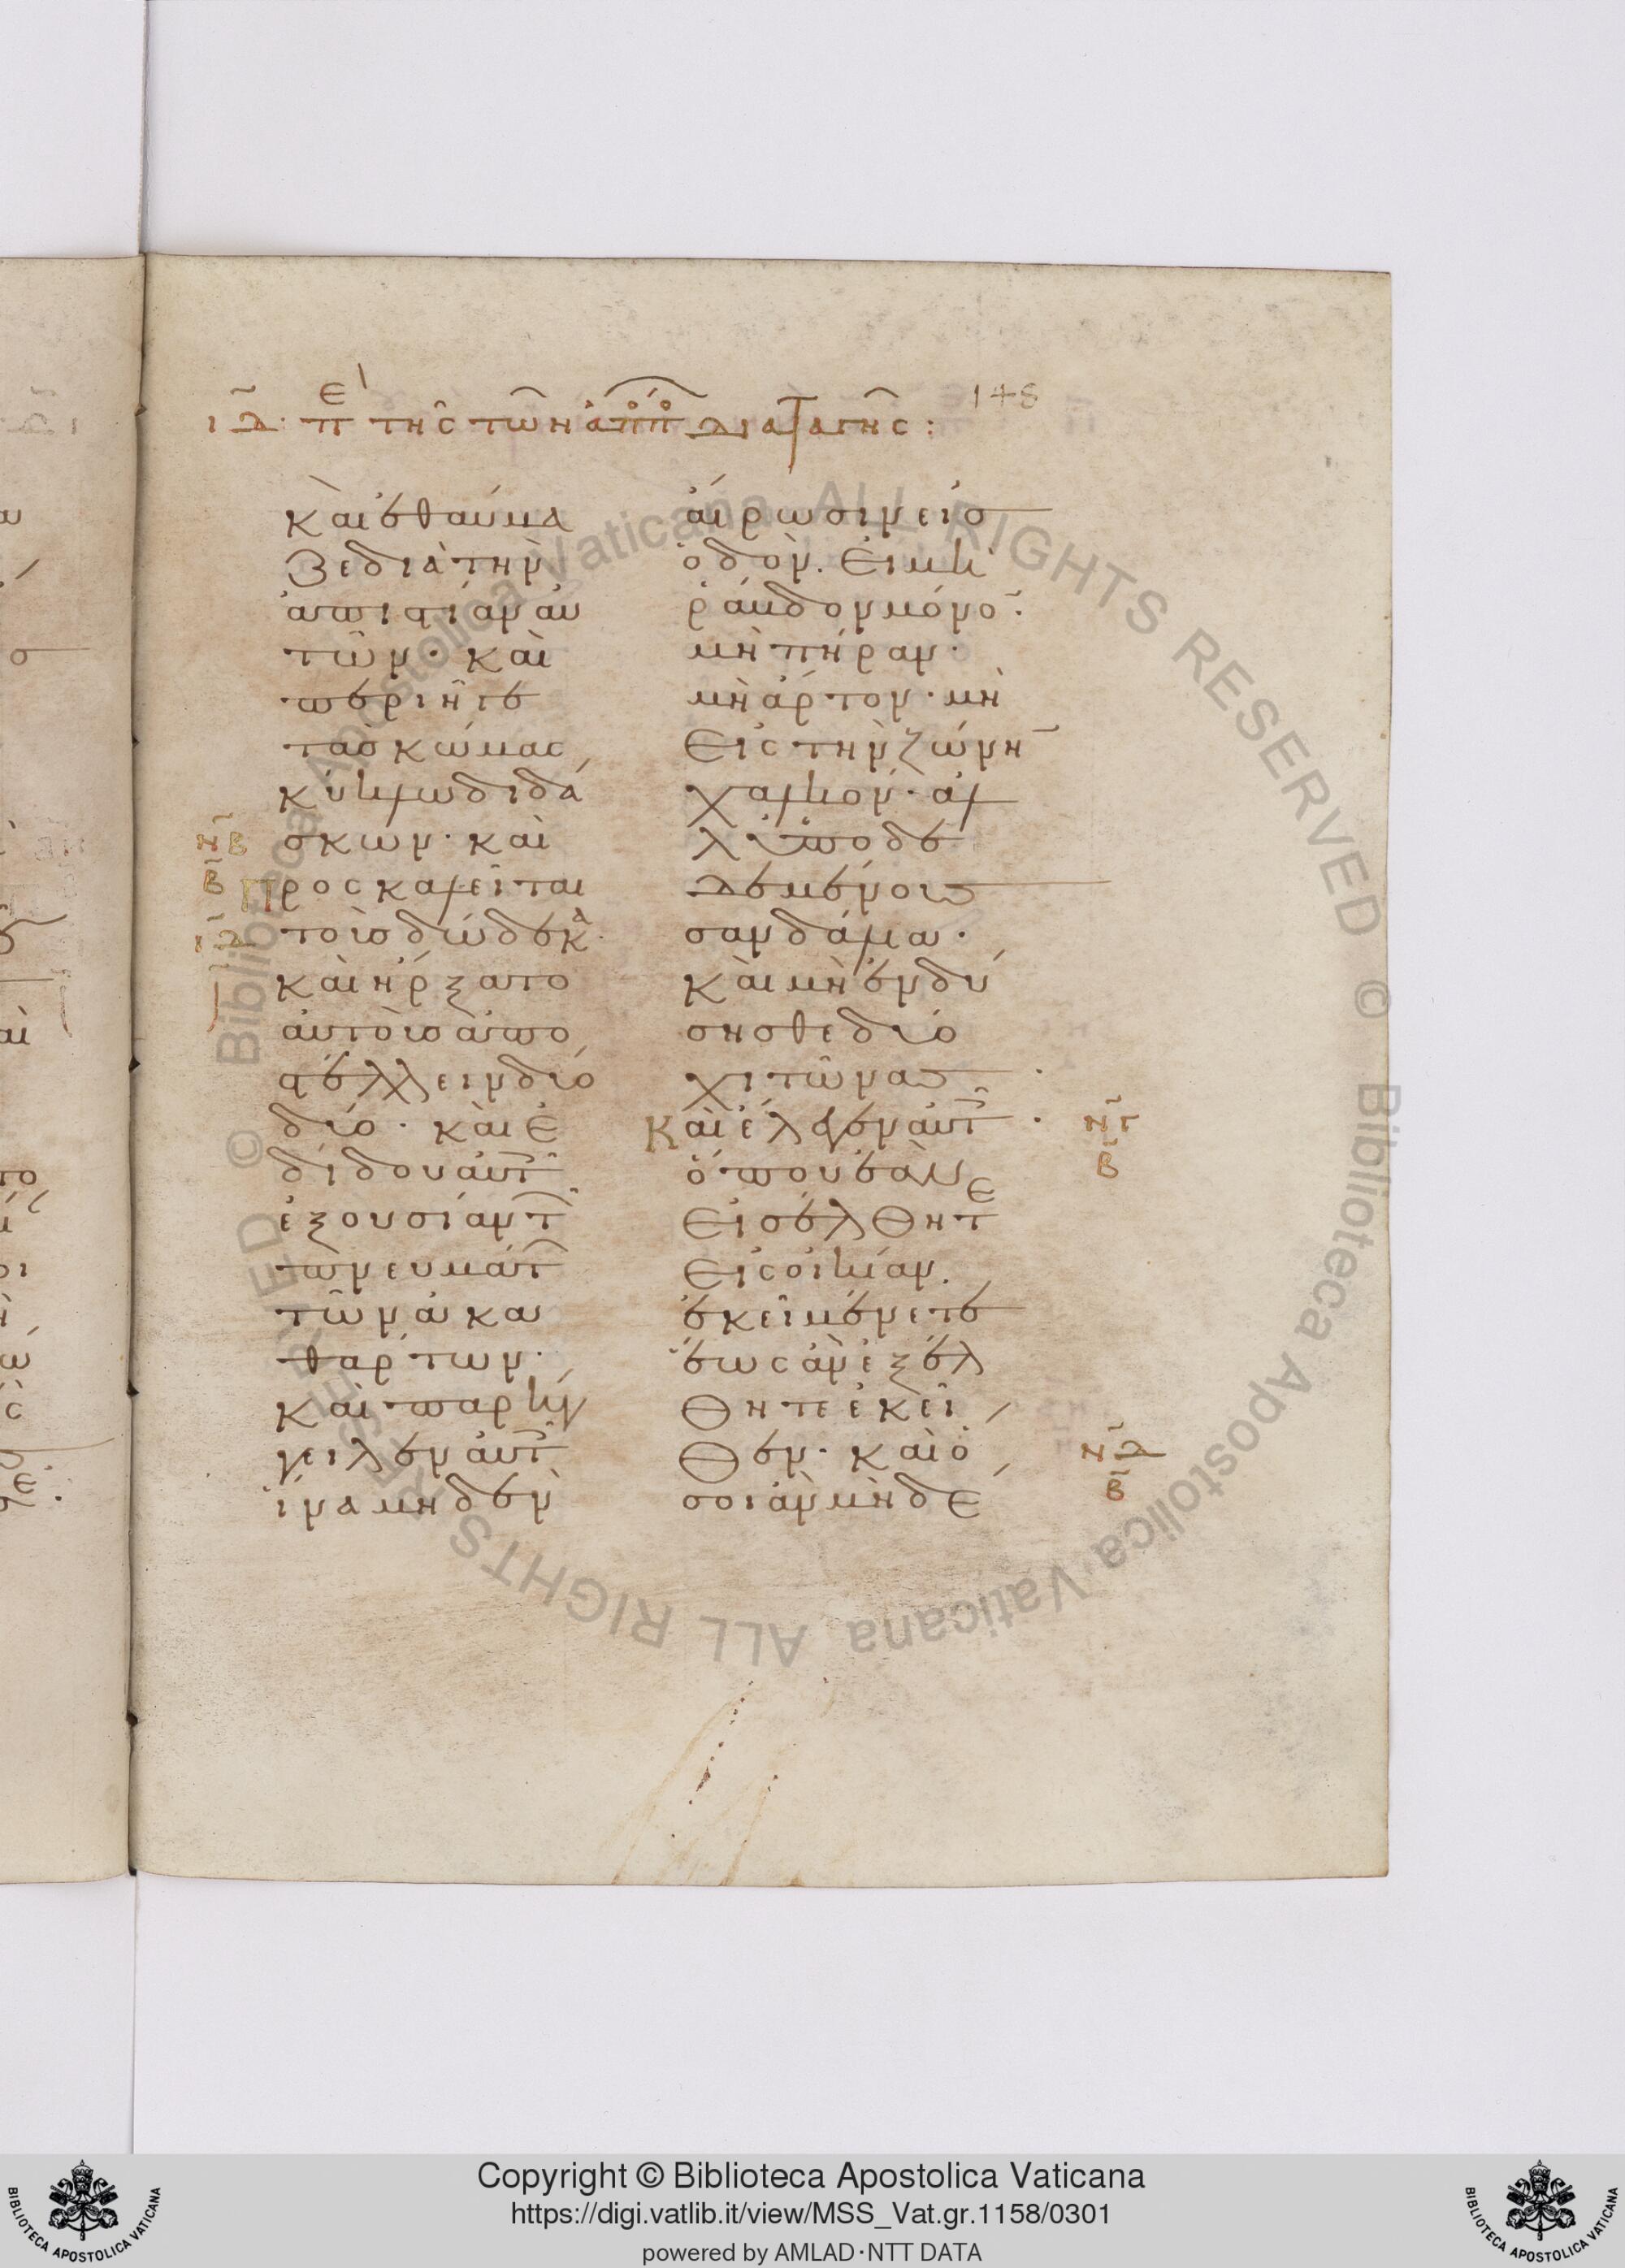 148
ιδ πε τῆς τῶν ἀποστόλων διαταγῆς:
καὶ ἐθαύμα
ζε διὰ τὴν
ἀπιστίαν αὐ
τῶν· καὶ
περιῆγε
τὰς κώμας
κύκλω διδά
σκων· καὶ
προσκαλεῖται
τοὺς δώδεκα·
καὶ ἤρξατο
αὐτοὺς ἀπο
στέλλειν δύο
δύο· καὶ ἐ
δίδου αὐτοῖς
ἐξουσίαν τῶν
πνευμάτων
τῶν ἀκα
θάρτων·
καὶ παρήγ
γειλεν αὐτοῖς
ἵνα μηδὲν
αἴρωσιν εἰς
ὁδόν. εἰ μὴ
ῥάβδον μόνον·
μὴ πήραν·
μὴ ἄρτον· μὴ
εἰς τὴν ζώνην
χαλκόν· ἀλ
λ' ὑποδε
δεμένους
σανδάλια·
καὶ μὴ ἐνδύ
σησθε δύο
χιτῶνας
Καὶ ἔλεγεν αὐτοῖς·
ὅπου ἐὰν
εἰσέλθητε
εἰς οἰκίαν.
ἐκεῖ μένετε
ἕως ἂν ἐξέλ
θητε ἐκεῖ
θεν· καὶ ὅ
σοι ἂν μὴ δέ
νβ
β
ιδ
νγ
β
νδ
β
Copyright © Biblioteca Apostolica Vaticana
https://digi.vatlib.it/view/MSS_Vat.gr.1158/0301
powered by AMLAD·NTT DATA
BIBLIOTECA APOSTOLICA VATICANA
BIBLIOTECA APOSTOLICA VATICANA